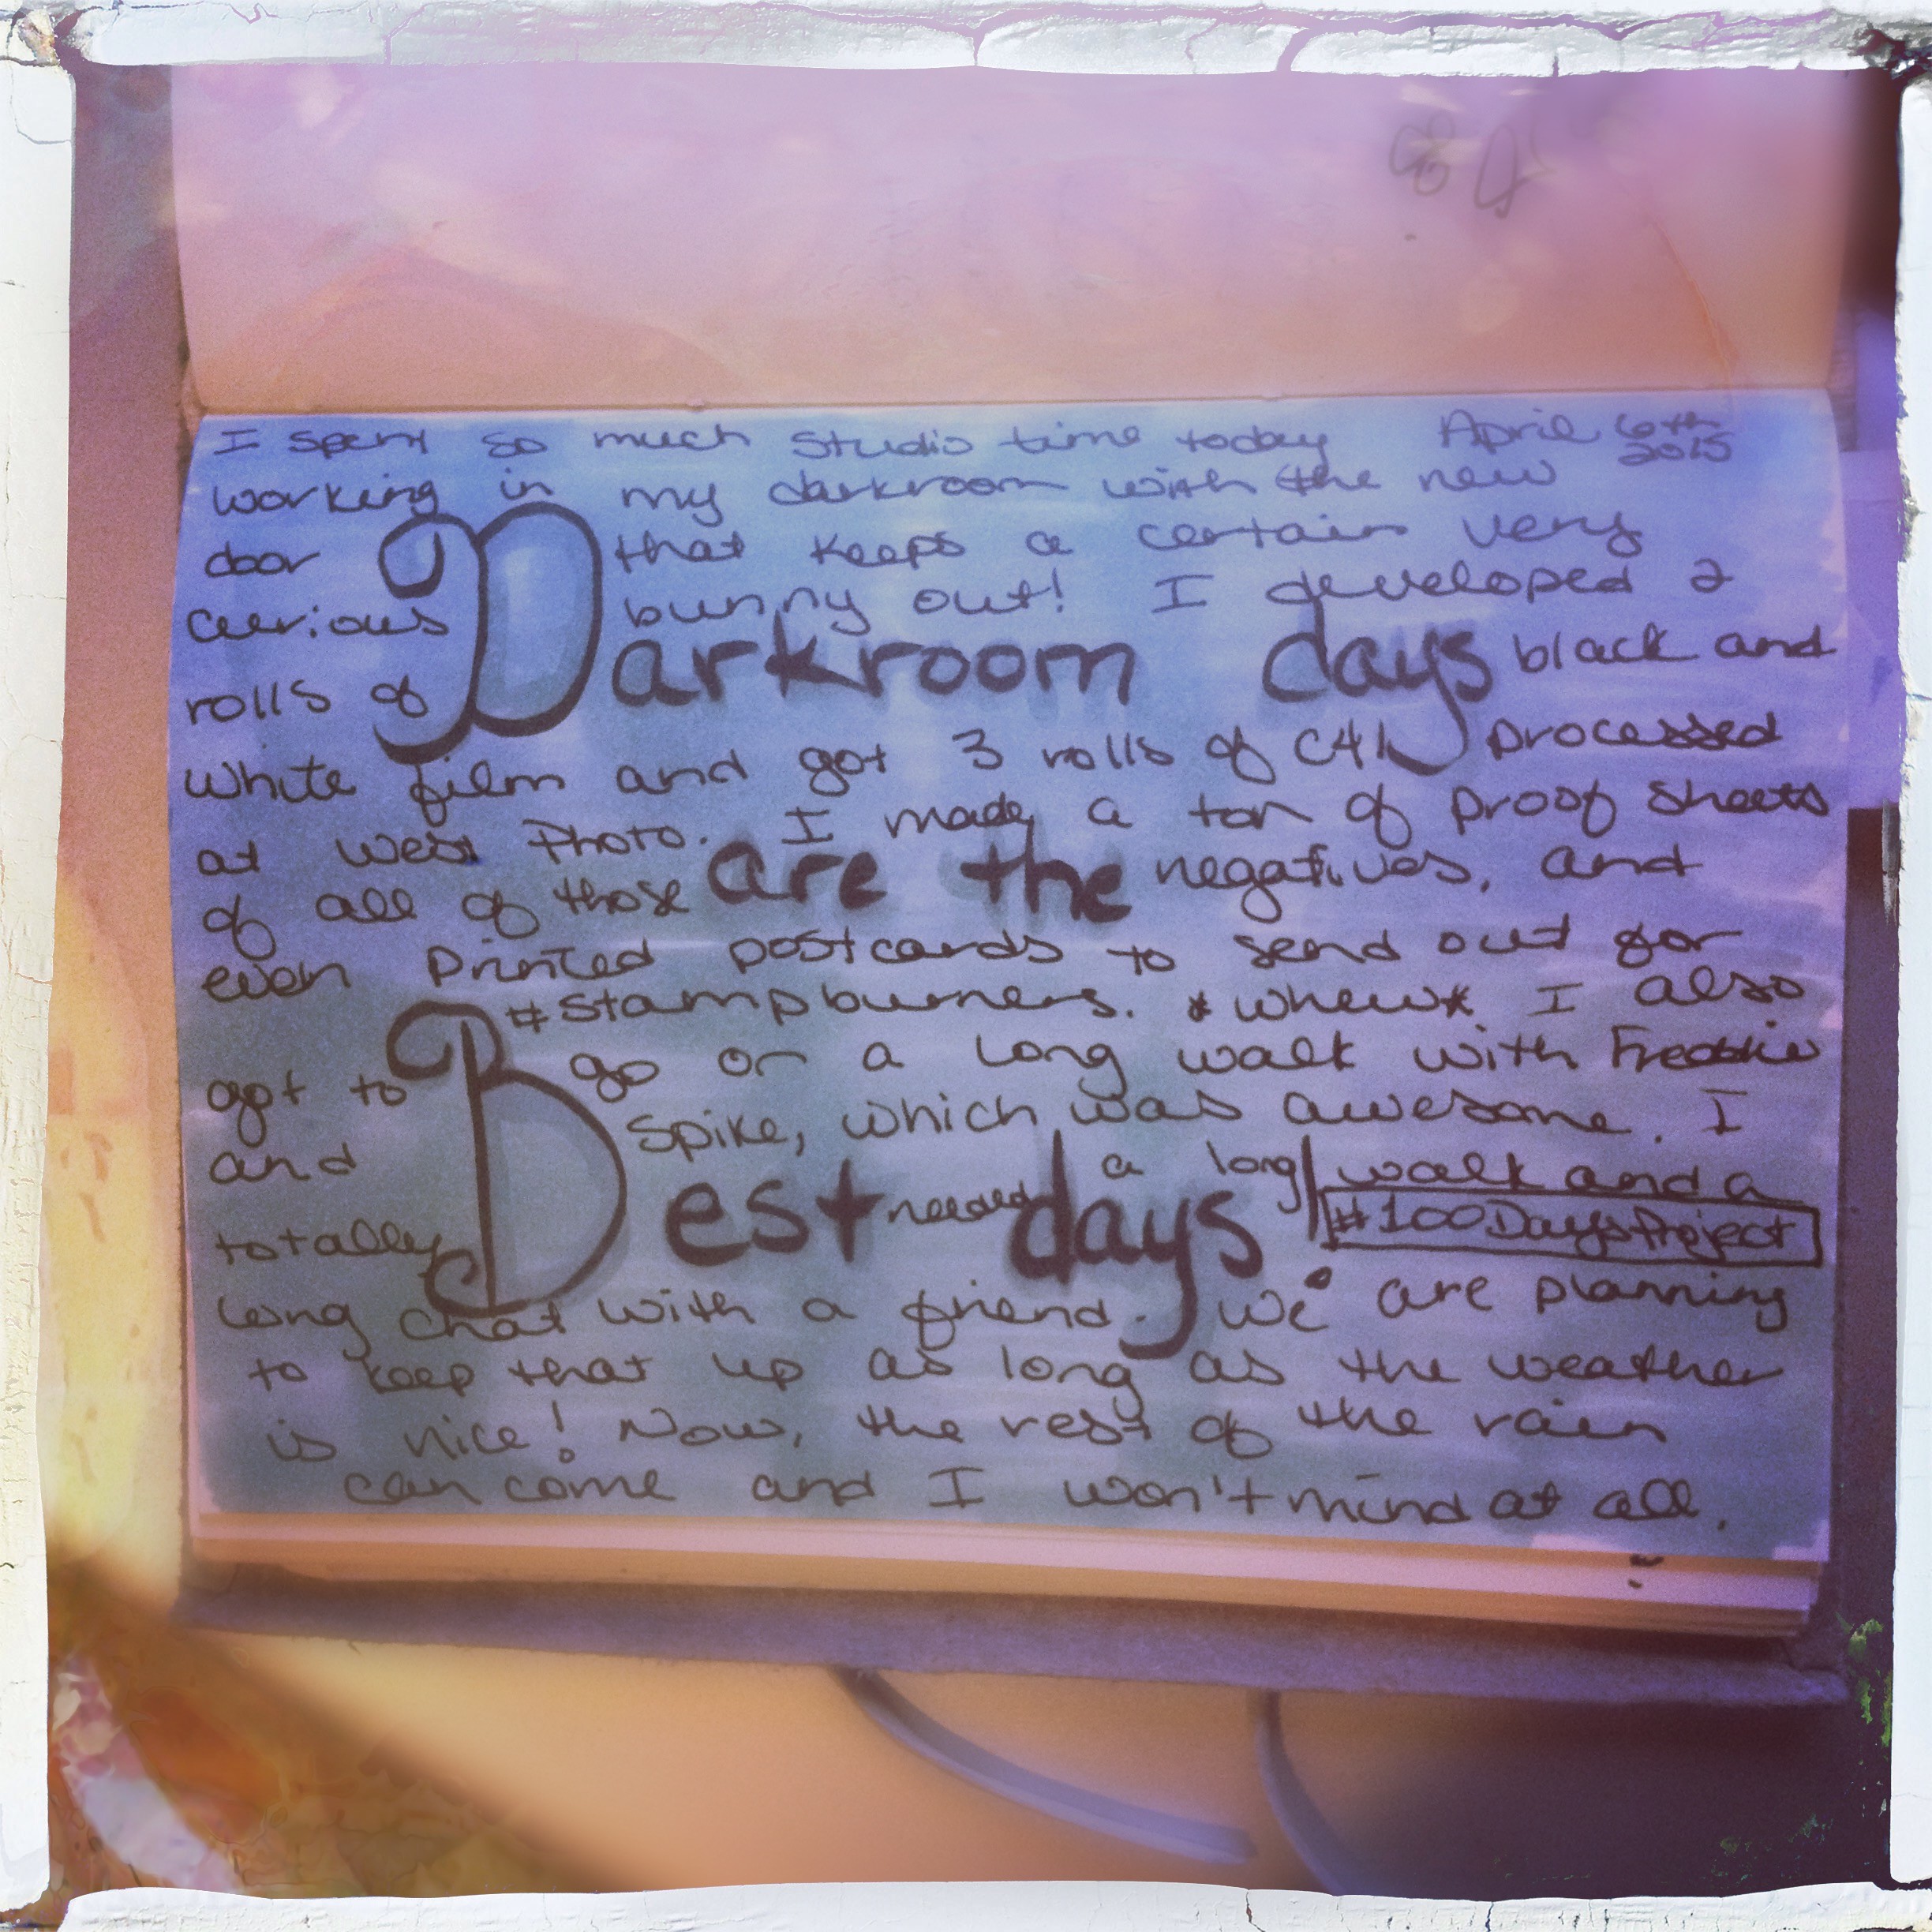 I spent so much studio time today April 6th 2015
working in my darkroom with the new
door that keeps a certain very
curious bunny out! I developed 2
rolls of Darkroom days black and
white film and got 3 rolls of C41 processed
at West Photo. I made a ton of proof sheets
of all of those are the negatives, and
even printed postcards to send out for
#stampburners. *whew* I also
got to go on a long walk with Freddie
and Spike, which was awesome. I
totally Best needed days! a long walk and a
#100DaysProject
long chat with a friend. We are planning
to keep that up as long as the weather
is nice! Now, the rest of the rain
can come and I won't mind at all.